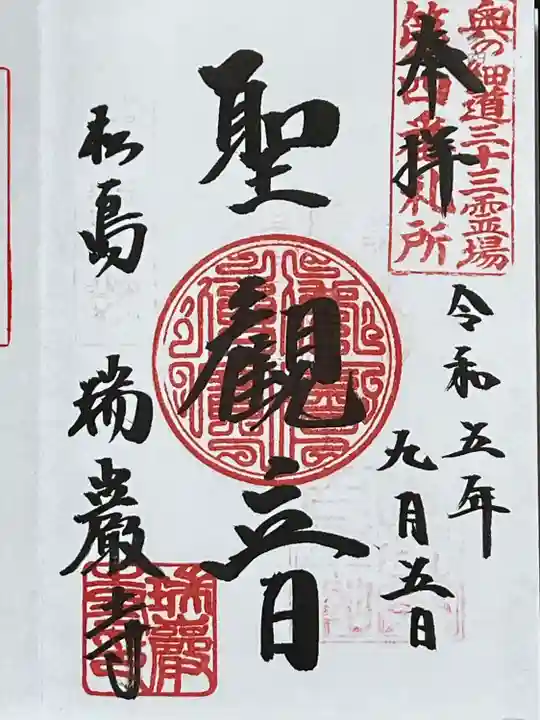 奥の細道三十三霊場
第四番札所
奉拝
令和五年
九月五日
聖観音
松島 瑞巌寺